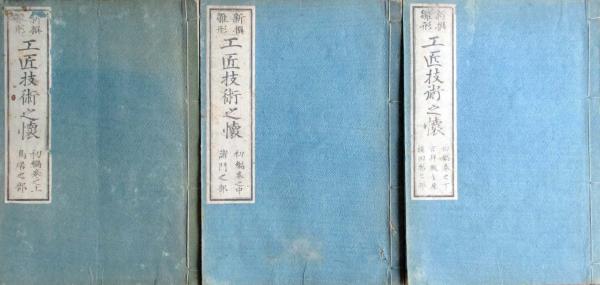 新撰
雛形
工匠技術之懐
初編巻之上
鳥居之部
新撰
雛形
工匠技術之懐
初編巻之中
諸門之部
新撰
雛形
工匠技術之懐
初編巻之下